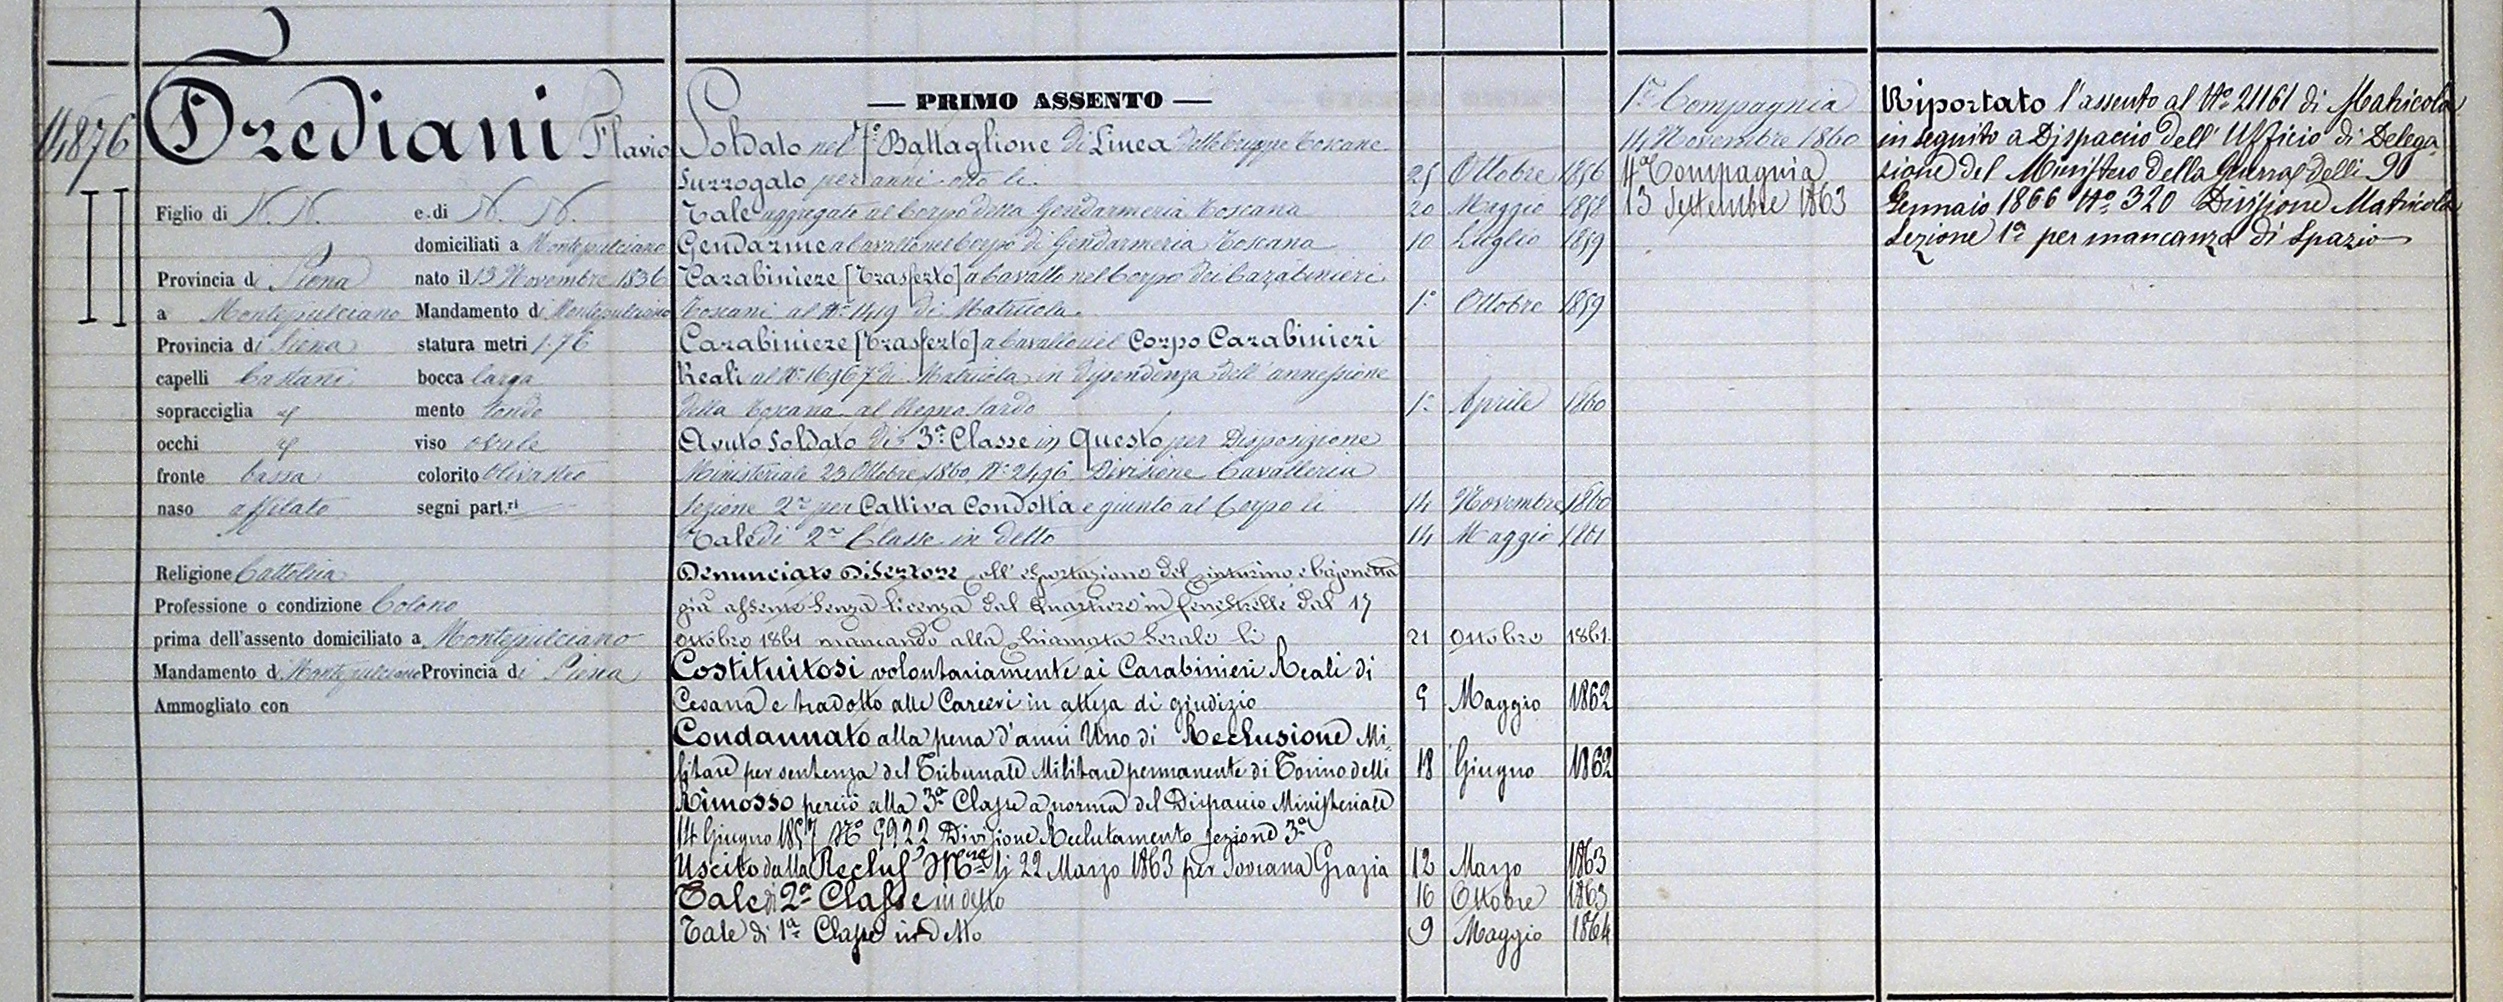 14876
Frediani Flavio
II
Figlio di N. N. e di N. N.
domiciliati a Montepulciano
Provincia di Siena nato il 13 Novembre 1836
a Montepulciano Mandamento di Montepulciano
Provincia di Siena statura metri 1.76
capelli Castani bocca larga
sopracciglia id mento tondo
occhi id viso ovale
fronte bassa colorito olivastro
naso affilato segni part.ri
Religione Cattolica
Professione o condizione Colono
prima dell'assento domiciliato a Montepulciano
Mandamento di Montepulciano Provincia di Siena
Ammogliato con
— PRIMO ASSENTO —
Soldato nel 7° Battaglione di Linea delle truppe toscane
Surrogato per anni otto li 25 Ottobre 1856
Tale aggregato al Corpo della Gendarmeria toscana 20 Maggio 1858
Gendarme a Cavallo nel Corpo di Gendarmeria Toscana 10 Luglio 1859
Carabiniere [Trasferto] a Cavallo nel Corpo dei Carabinieri
toscani al N° 1419 di Matricola 1° Ottobre 1859
Carabiniere [Trasferto] a Cavallo nel Corpo Carabinieri
Reali al N° 16967 di Matricola in dipendenza dell'annessione
della toscana al Regno Sardo 1° Aprile 1860
Avuto Soldato di 3a Classe in Questo per Disposizione
Ministeriale 23 Ottobre 1860 N° 2496 Divisione Cavalleria
Sezione 2a per Cattiva Condotta e giunto al Corpo li 14 Novembre 1860
Tale di 2a Classe in detto 14 Maggio 1861
Denunciato Disertore coll'esportazione del cinturino e bajonetta
già assente senza licenza dal Quartiere in Fenestrelle dal 17
ottobre 1861 mancando alla chiamata serale li 21 Ottobre 1861
Costituitosi volontariamente ai Carabinieri Reali di
Cesana e tradotto alle Carceri in attesa di giudizio 9 Maggio 1862
Condannato alla pena d'anni Uno di Reclusione Mi-
litare per sentenza del Tribunale Militare permanente di Torino delli 18 Giugno 1862
Rimosso perciò alla 3a Classe a norma del Dispaccio Ministeriale
14 Giugno 1857 N° 9922 Divisione Reclutamento Sezione 3a
Uscito dalla Reclus.e M.re li 22 Marzo 1863 per Sovrana Grazia 12 Marzo 1863
Tale di 2a Classe in detto 16 Ottobre 1863
Tale di 1a Classe in detto 9 Maggio 1864
1a Compagnia
14 Novembre 1860
4a Compagnia
13 Settembre 1863
Riportato l'assento al N° 21161 di Matricola
in seguito a Dispaccio dell'Ufficio di Delega
zione del Ministero della Guerra delli 90
Gennaio 1866 N° 320 Divisione Matricola
Sezione 1a per mancanza di spazio